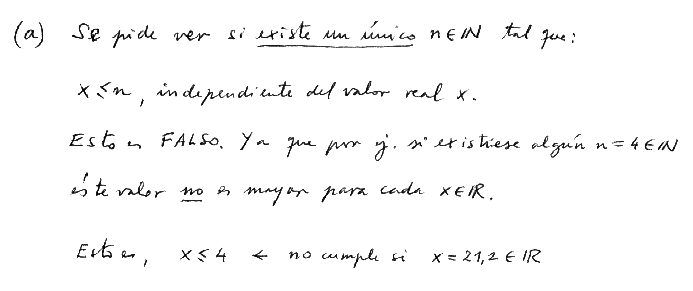 (a) Se pide ver si existe un único n ∈ IN tal que:
x ≤ n, independiente del valor real x.
Esto es FALSO. Ya que por ej. si existiese algún n = 4 ∈ IN
éste valor no es mayor para cada x ∈ IR.
Esto es, x ≤ 4 ← no cumple si x = 21,2 ∈ IR